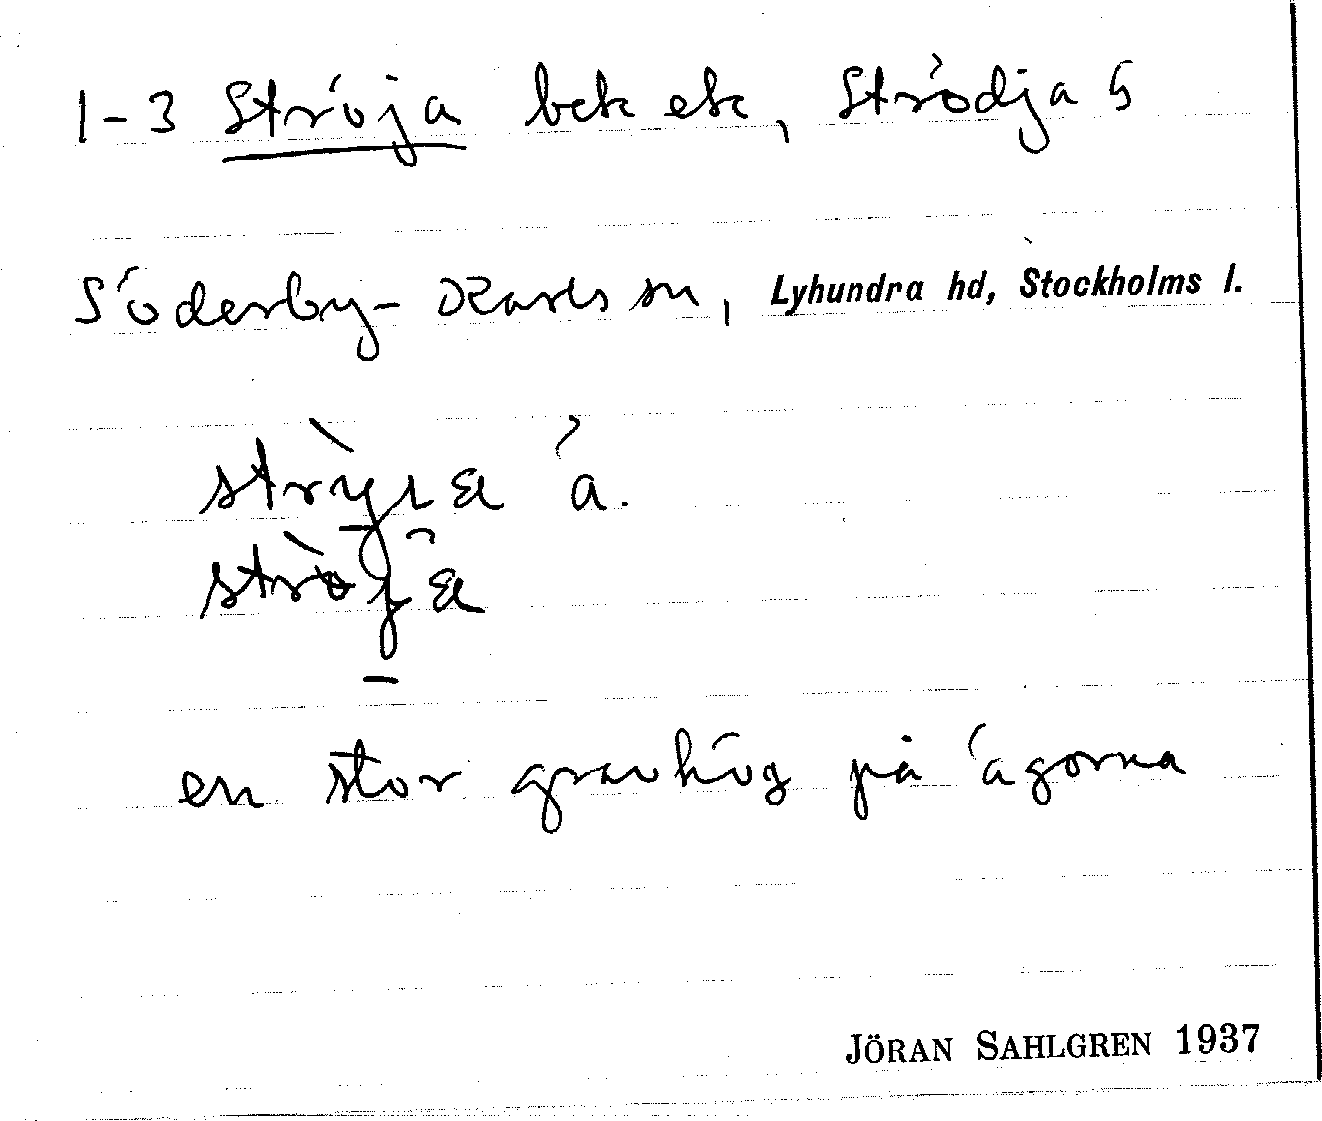 1-3 Ströja bck ek, Strödja 5
Söderby-Karls sn, Lyhundra hd, Stockholms l.
a.
en stor gravhög på ägorna
JÖRAN SAHLGREN 1937